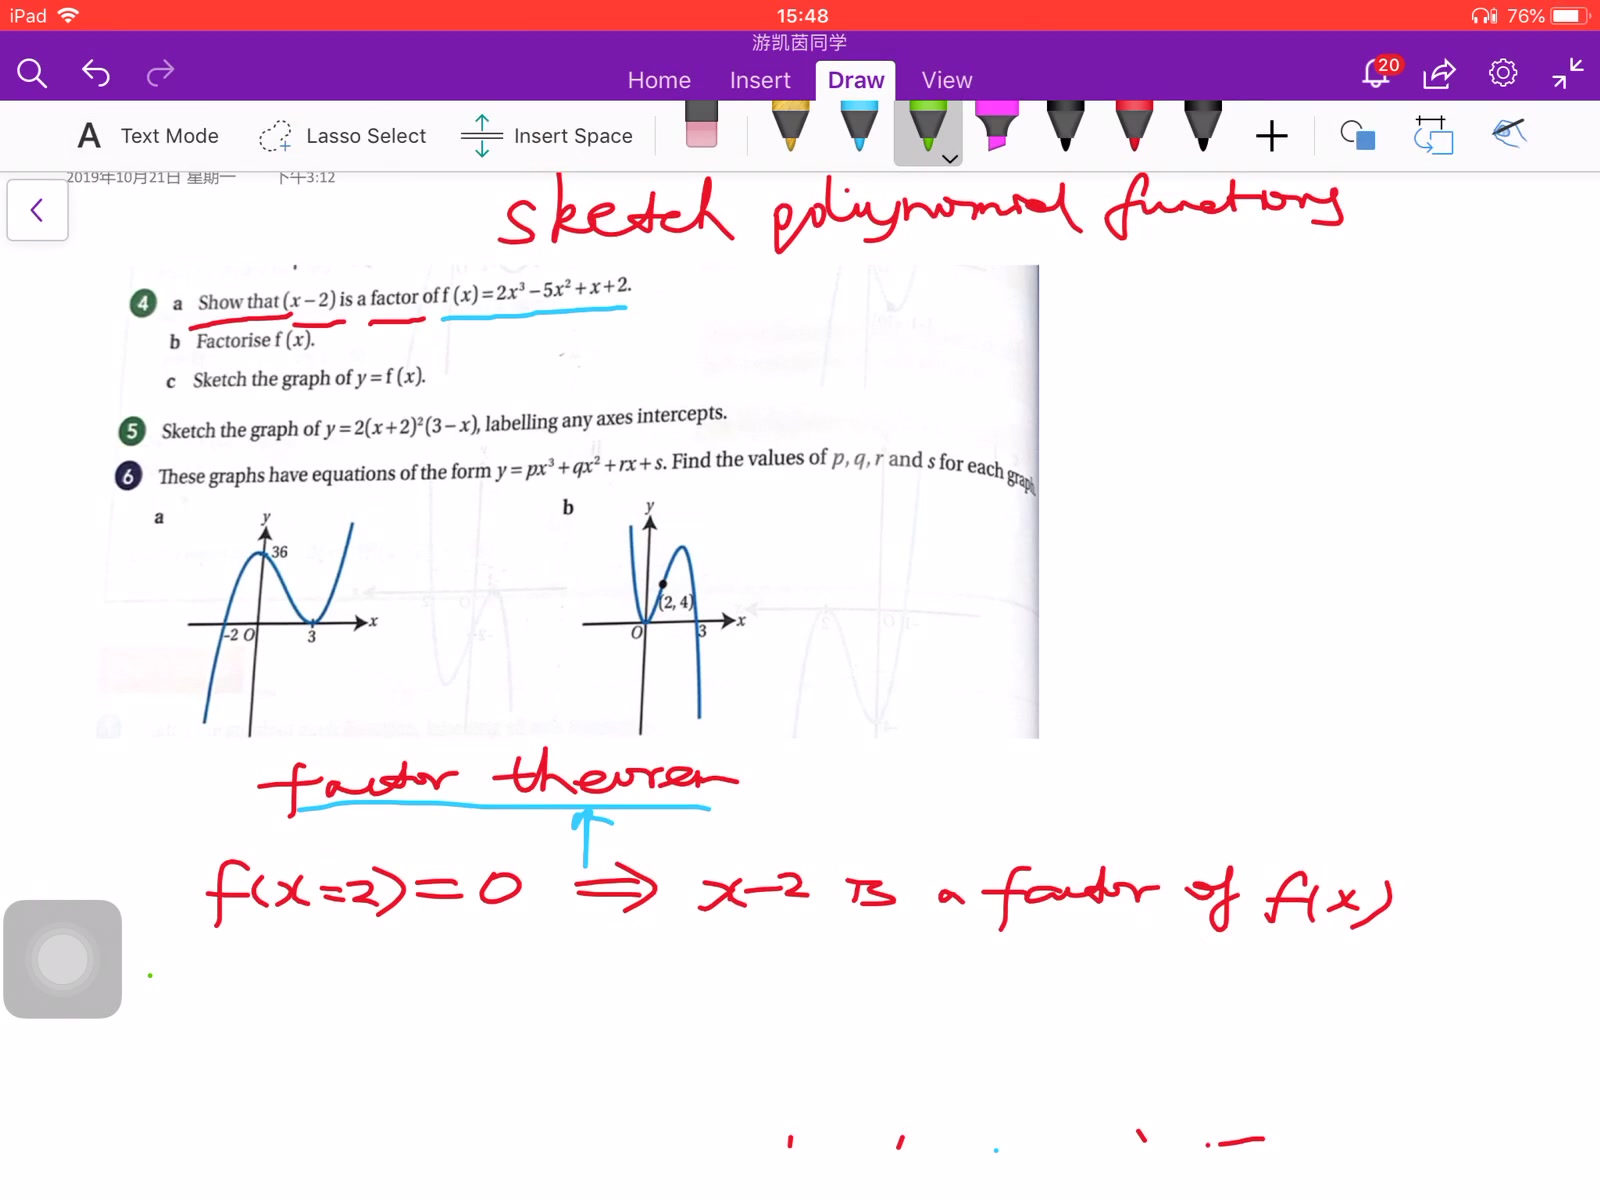 iPad 15:48 76%
游凯茵同学
Home Insert Draw View 20
A Text Mode Lasso Select Insert Space
2019年10月21日 星期一 下午3:12
sketch polynomial functions
4 a Show that (x−2) is a factor of f(x)=2x³−5x²+x+2.
b Factorise f(x).
c Sketch the graph of y=f(x).
5 Sketch the graph of y=2(x+2)²(3−x), labelling any axes intercepts.
6 These graphs have equations of the form y=px³+qx²+rx+s. Find the values of p, q, r and s for each graph
a y 36 -2 O 3 x
b y (2, 4) O 3 x
factor theorem
f(x=2)=0 ⇒ x-2 is a factor of f(x)